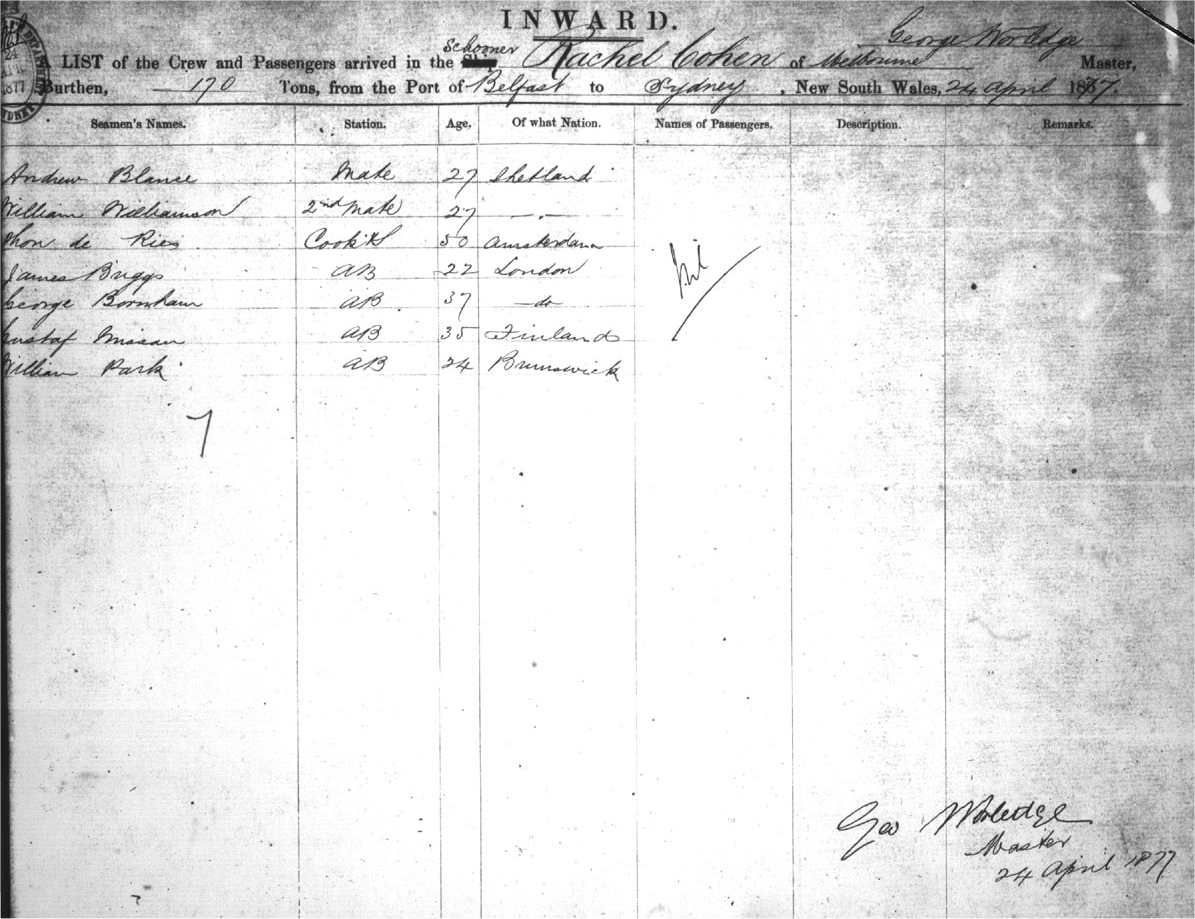 INWARD.
George Worledge
Schooner
A LIST of the Crew and Passengers arrived in the Rachel Cohen of Melbourne Master,
Burthen, 170 Tons, from the Port of Belfast to Sydney, New South Wales, 24 April 1877.
24
1877
Seamen's Names. Station. Age. Of what Nation. Names of Passengers. Description. Remarks.
Andrew Blance Mate 27 Shetland
William Williamson 2nd Mate 27 -"-
de Ries Cook &S 50 Amsterdam
James Briggs AB 22 London
George Bornham AB 37 -do-
Gustaf AB 35 Finland
William Park AB 24 Brunswick
Nil
7
Geo Worledge
Master
24 April 1877